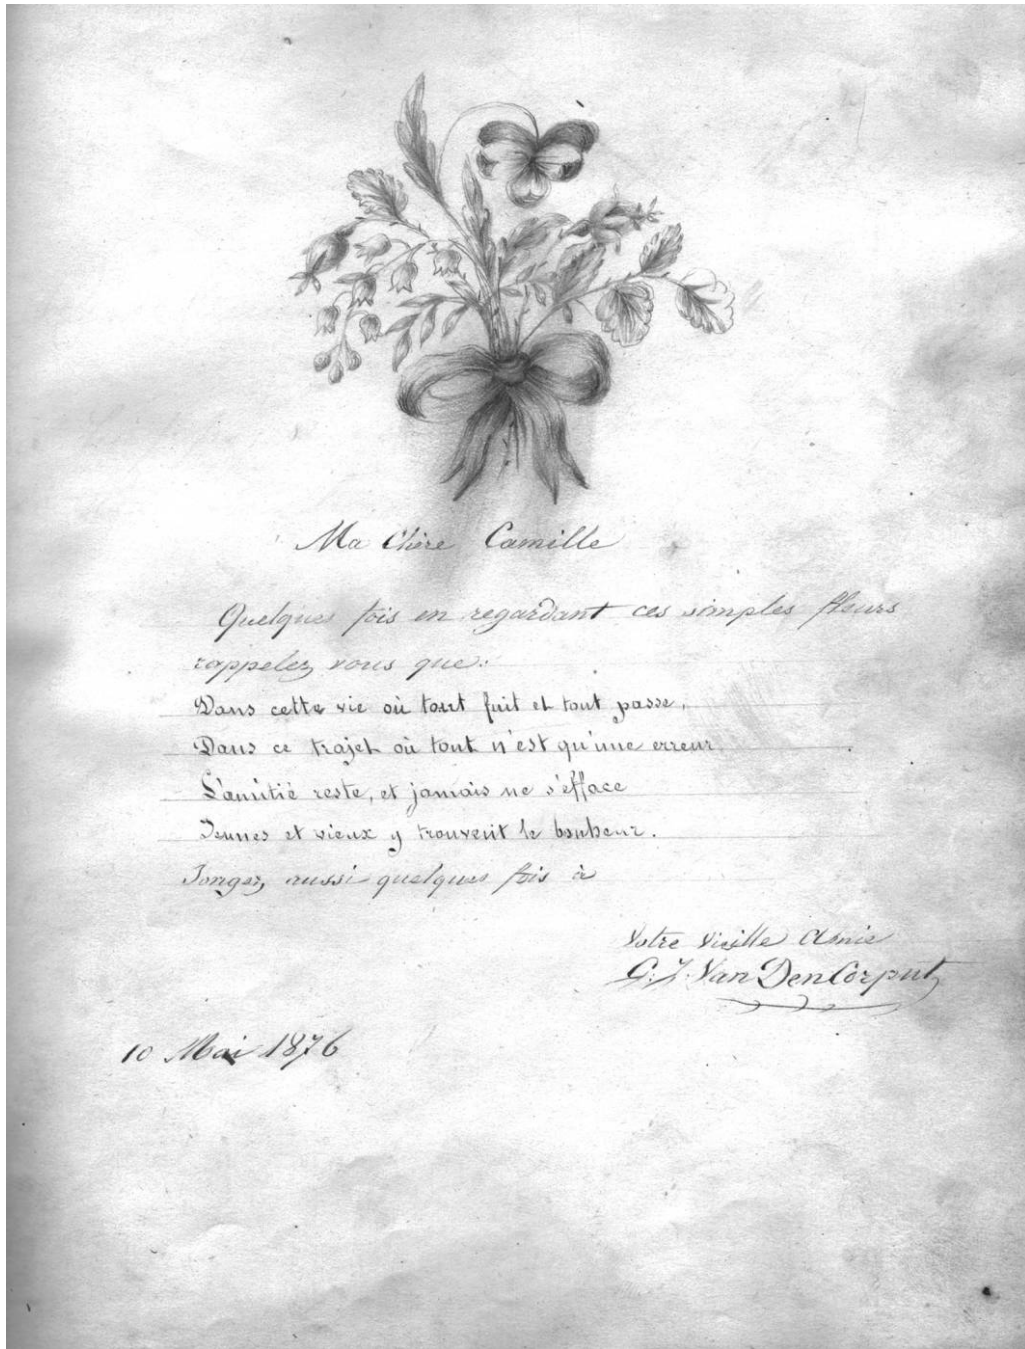 Ma Chère Camille
Quelques fois en regardant ces simples fleurs
rappelez vous que:
Dans cette vie où tout fuit et tout passe,
Dans ce trajet où tout n'est qu'une erreur
L'amitié reste, et jamais ne s'efface
Jeunes et vieux y trouvent le bonheur.
Songez, aussi quelques fois à
Votre Vieille Amie
G. J. Van Den Corput
10 Mai 1876